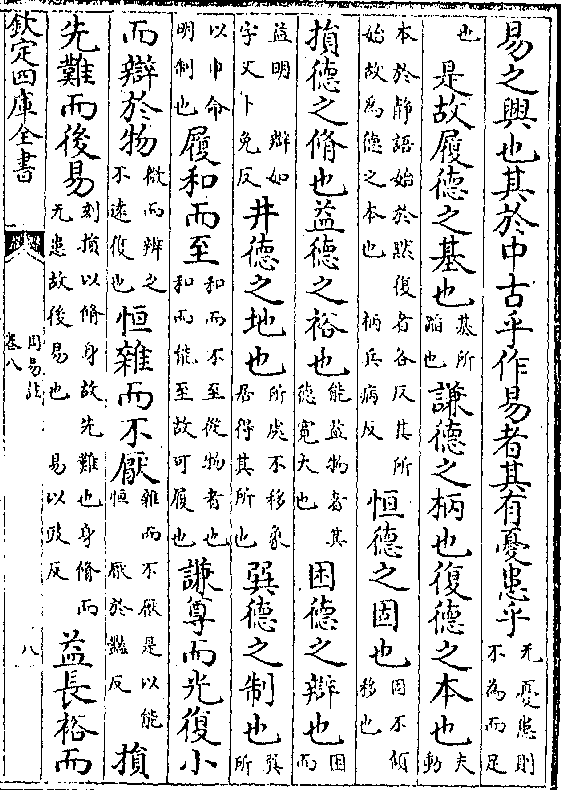 易之興也其於中古乎作易者其有憂患乎无憂患則不為而足
也是故履德之基也基所蹈也謙德之柄也復德之本也夫動
本於静語始於黙復者各反其所始故為德之本也柄兵病反恒德之固也固不傾移也
損德之脩也益德之裕也能益物者其德寛大也困德之辯也困而
益明辯如字又卜免反井德之地也所處不移象居得其所也巽德之制也巽所
以申命明制也履和而至和而不至從物者也和而能至故可履也謙尊而光復小
而辯於物微而辨之不遠復也恒雜而不厭雜而不厭是以能恒厭於豔反損
先難而後易刻損以脩身故先難也身脩而无患故後易也易以豉反益長裕而
欽定四庫全書
周易註
卷八
八